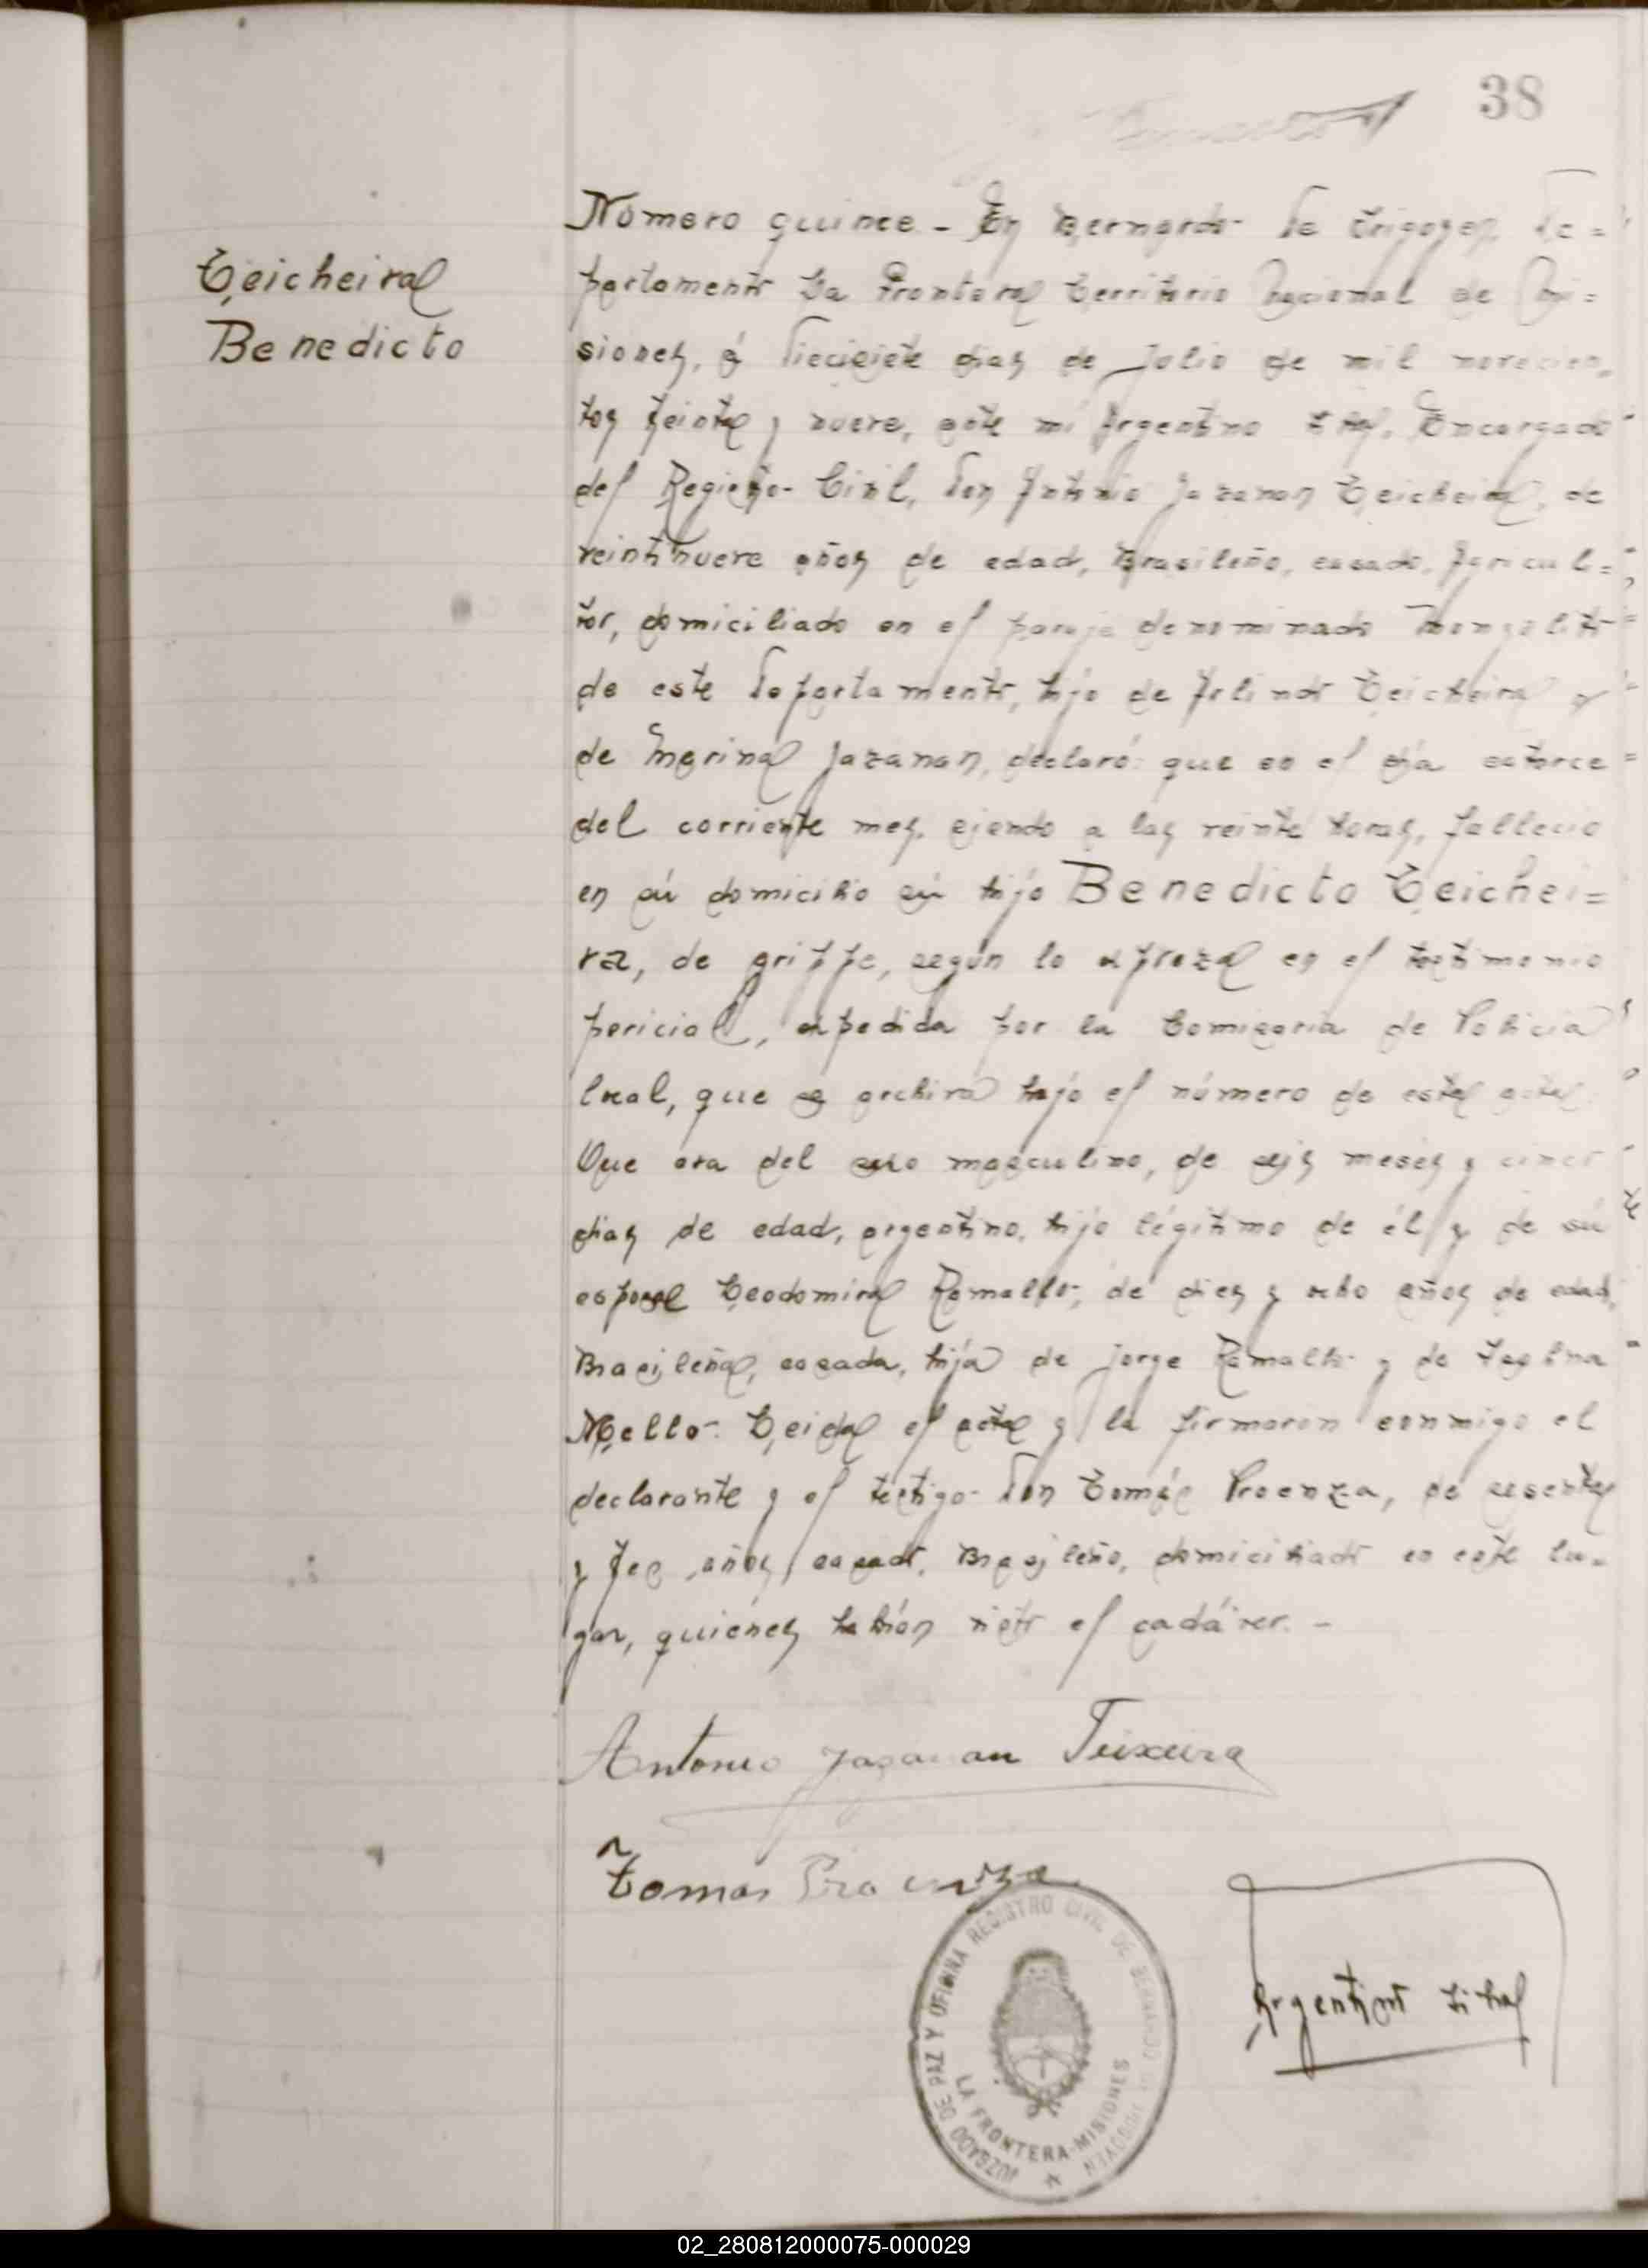 38
Teicheira
Benedicto
Número quince - En Bernardo de Irigoyen, De=
partamento La Frontera Territorio Nacional de Mi=
siones, á diecisiete dias de Julio de mil novecien
tos treinta y nueve, ante mi Argentino Encargado
del Registro Civil, Don Antonio Jazanan Teicheira, de
veintinueve años de edad, Brasileño, casado, Agricul=
tor, domiciliado en el paraje denominado Monzolito
de este Departamento, hijo de Teicheira y
de Marina Jazanan, declaró: que en el día catorce
del corriente mes, siendo a las veinte horas, fallecio
en sú domicilio sú hijo Benedicto Teichei=
ra, de grippe, según lo expreza en el testimonio
pericial, expedida por la Comisaria de Policia
local, que se archiva bajo el número de esta acta.
Que era del sexo masculino, de seis meses y cinco
dias de edad, argentino, hijo légitimo de él y de sú
esposa Teodomira Ramallo, de diez y ocho años de edad,
Brasileña, casada, hija de Jorge Ramallo y de
Mello. Leida el acta y la firmaron conmigo el
declarante y el téstigo Don Tomás Proenza, de sesenta
y tres años, casado, Brasileño, domiciliado en este lu=
gar, quiénes habían visto el cadáver. -
Antonio Jaçanan Teixeira
Tomas Proenza
Argentino
JUZGADO DE PAZ Y OFICINA REGISTRO CIVIL DE BERNARDO DE IRIGOYEN
LA FRONTERA-MISIONES
02_280812000075-000029